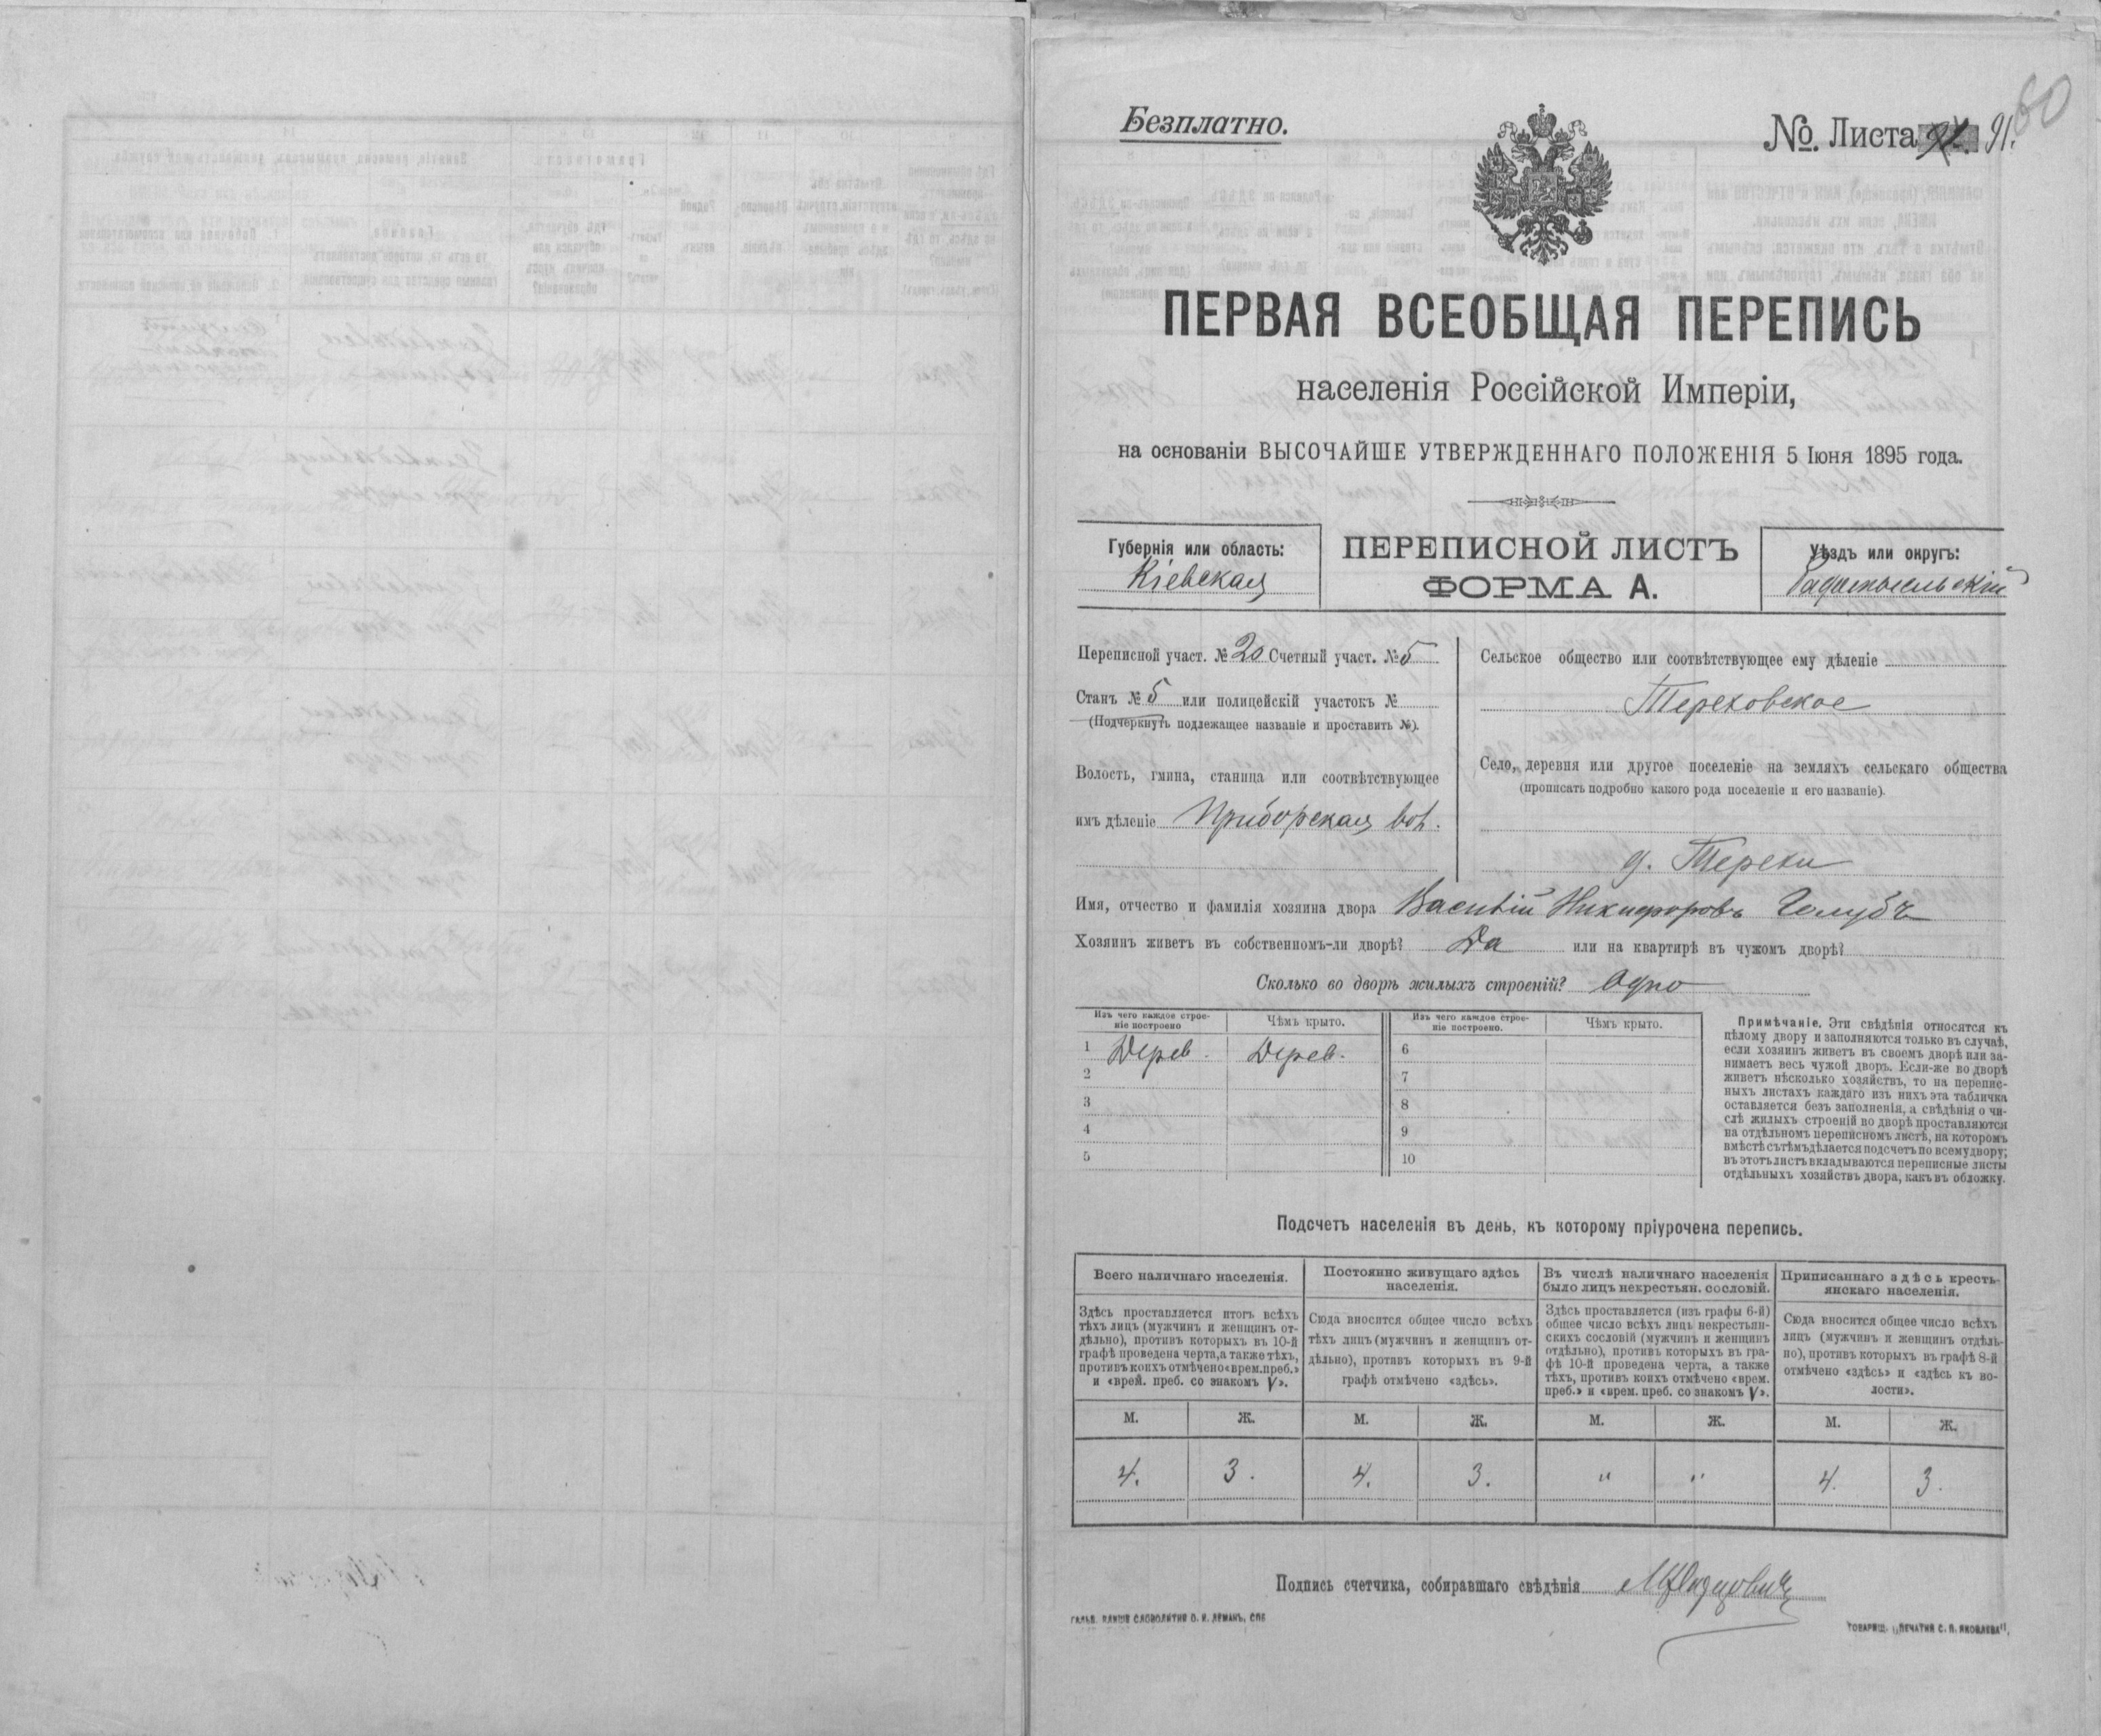 Безплатно.
№ Листа 91.
60
ПЕРВАЯ ВСЕОБЩАЯ ПЕРЕПИСЬ
населенія Россійской Имперіи,
на основаніи ВЫСОЧАЙШЕ УТВЕРЖДЕННАГО ПОЛОЖЕНІЯ 5 Іюня 1895 года.
Губернія или область:
Кіевская
ПЕРЕПИСНОЙ ЛИСТЪ
ФОРМА А.
Уѣздъ или округъ:
Радомысльскій
Переписной участ. № 20 Счетный участ. № 5
Станъ № 5 или полицейскій участокъ №
(Подчеркнуть подлежащее названіе и проставить №).
Волость, гмина, станица или соотвѣтствующее
имъ дѣленіе Приборская вол.
Сельское общество или соотвѣтствующее ему дѣленіе
Тереховское
Село, деревня или другое поселеніе на земляхъ сельскаго общества
(прописать подробно какого рода поселеніе и его названіе).
д. Терехи
Имя, отчество и фамилія хозяина двора Василій Никифоровъ Голубъ
Хозяинъ живетъ въ собственномъ-ли дворѣ? Да или на квартирѣ въ чужомъ дворѣ?
Сколько во дворѣ жилыхъ строеній? Одно
Изъ чего каждое строе-
ніе построено
Чѣмъ крыто.
Изъ чего каждое строе-
ніе построено.
Чѣмъ крыто.
1 Дерев. Дерев.
2
3
4
5
6
7
8
9
10
Примѣчаніе. Эти свѣдѣнія относятся къ
цѣлому двору и заполняются только въ случаѣ,
если хозяинъ живетъ въ своемъ дворѣ или за-
нимаетъ весь чужой дворъ. Если-же во дворѣ
живетъ нѣсколько хозяйствъ, то на перепис-
ныхъ листахъ каждаго изъ нихъ эта табличка
оставляется безъ заполненія, а свѣдѣнія о чи-
слѣ жилыхъ строеній во дворѣ проставляются
на отдѣльномъ переписномъ листѣ, на которомъ
вмѣстѣ съ тѣмъ дѣлается подсчетъ по всему двору;
въ этотъ листъ вкладываются переписные листы
отдѣльныхъ хозяйствъ двора, какъ въ обложку.
Подсчетъ населенія въ день, къ которому пріурочена перепись.
Всего наличнаго населенія.
Здѣсь проставляется итогъ всѣхъ
тѣхъ лицъ (мужчинъ и женщинъ от-
дѣльно), противъ которыхъ въ 10-й
графѣ проведена черта, а также тѣхъ,
противъ коихъ отмѣчено «врем. преб.»
и «врем. преб. со знакомъ V».
Постоянно живущаго здѣсь
населенія.
Сюда вносится общее число всѣхъ
тѣхъ лицъ (мужчинъ и женщинъ от-
дѣльно), противъ которыхъ въ 9-й
графѣ отмѣчено «здѣсь».
Въ числѣ наличнаго населенія
было лицъ некрестьян. сословій.
Здѣсь проставляется (изъ графы 6-й)
общее число всѣхъ лицъ некрестьян-
скихъ сословій (мужчинъ и женщинъ
отдѣльно), противъ которыхъ въ гра-
фѣ 10-й проведена черта, а также
тѣхъ, противъ коихъ отмѣчено «врем.
преб.» и «врем. преб. со знакомъ V».
Приписаннаго здѣсь кресть-
янскаго населенія.
Сюда вносится общее число всѣхъ
лицъ (мужчинъ и женщинъ отдѣль-
но), противъ которыхъ въ графѣ 8-й
отмѣчено «здѣсь» и «здѣсь къ во-
лости».
М. Ж. М. Ж. М. Ж. М. Ж.
4. 3. 4. 3. " " 4. 3.
Подпись счетчика, собиравшаго свѣдѣнія
ГАЛЬВ. КЛИШЕ СЛОВОЛИТНИ О. И. ЛЕМАНЪ, СПБ
ТОВАРИЩ. „ПЕЧАТНЯ С. П. ЯКОВЛЕВА",